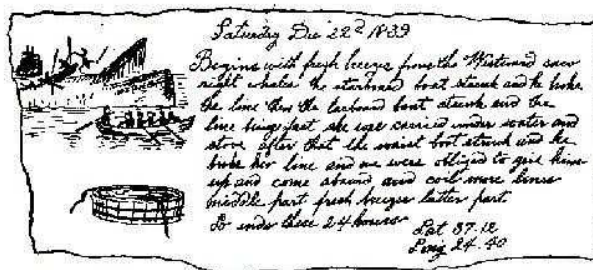 Saturday Dec 22d 1839
Begins with fresh breezes from the Westward saw
right whales the starboard boat struck and he broke
the line then the larboard boat struck and the
line being fast she was carried under water and
stove after that the waist boat struck and he
broke her line and we were obliged to give him
up and come aboard and coil more lines
middle part fresh breezes latter part
So ends these 24 hours
Lat 37.12
Long 24.40